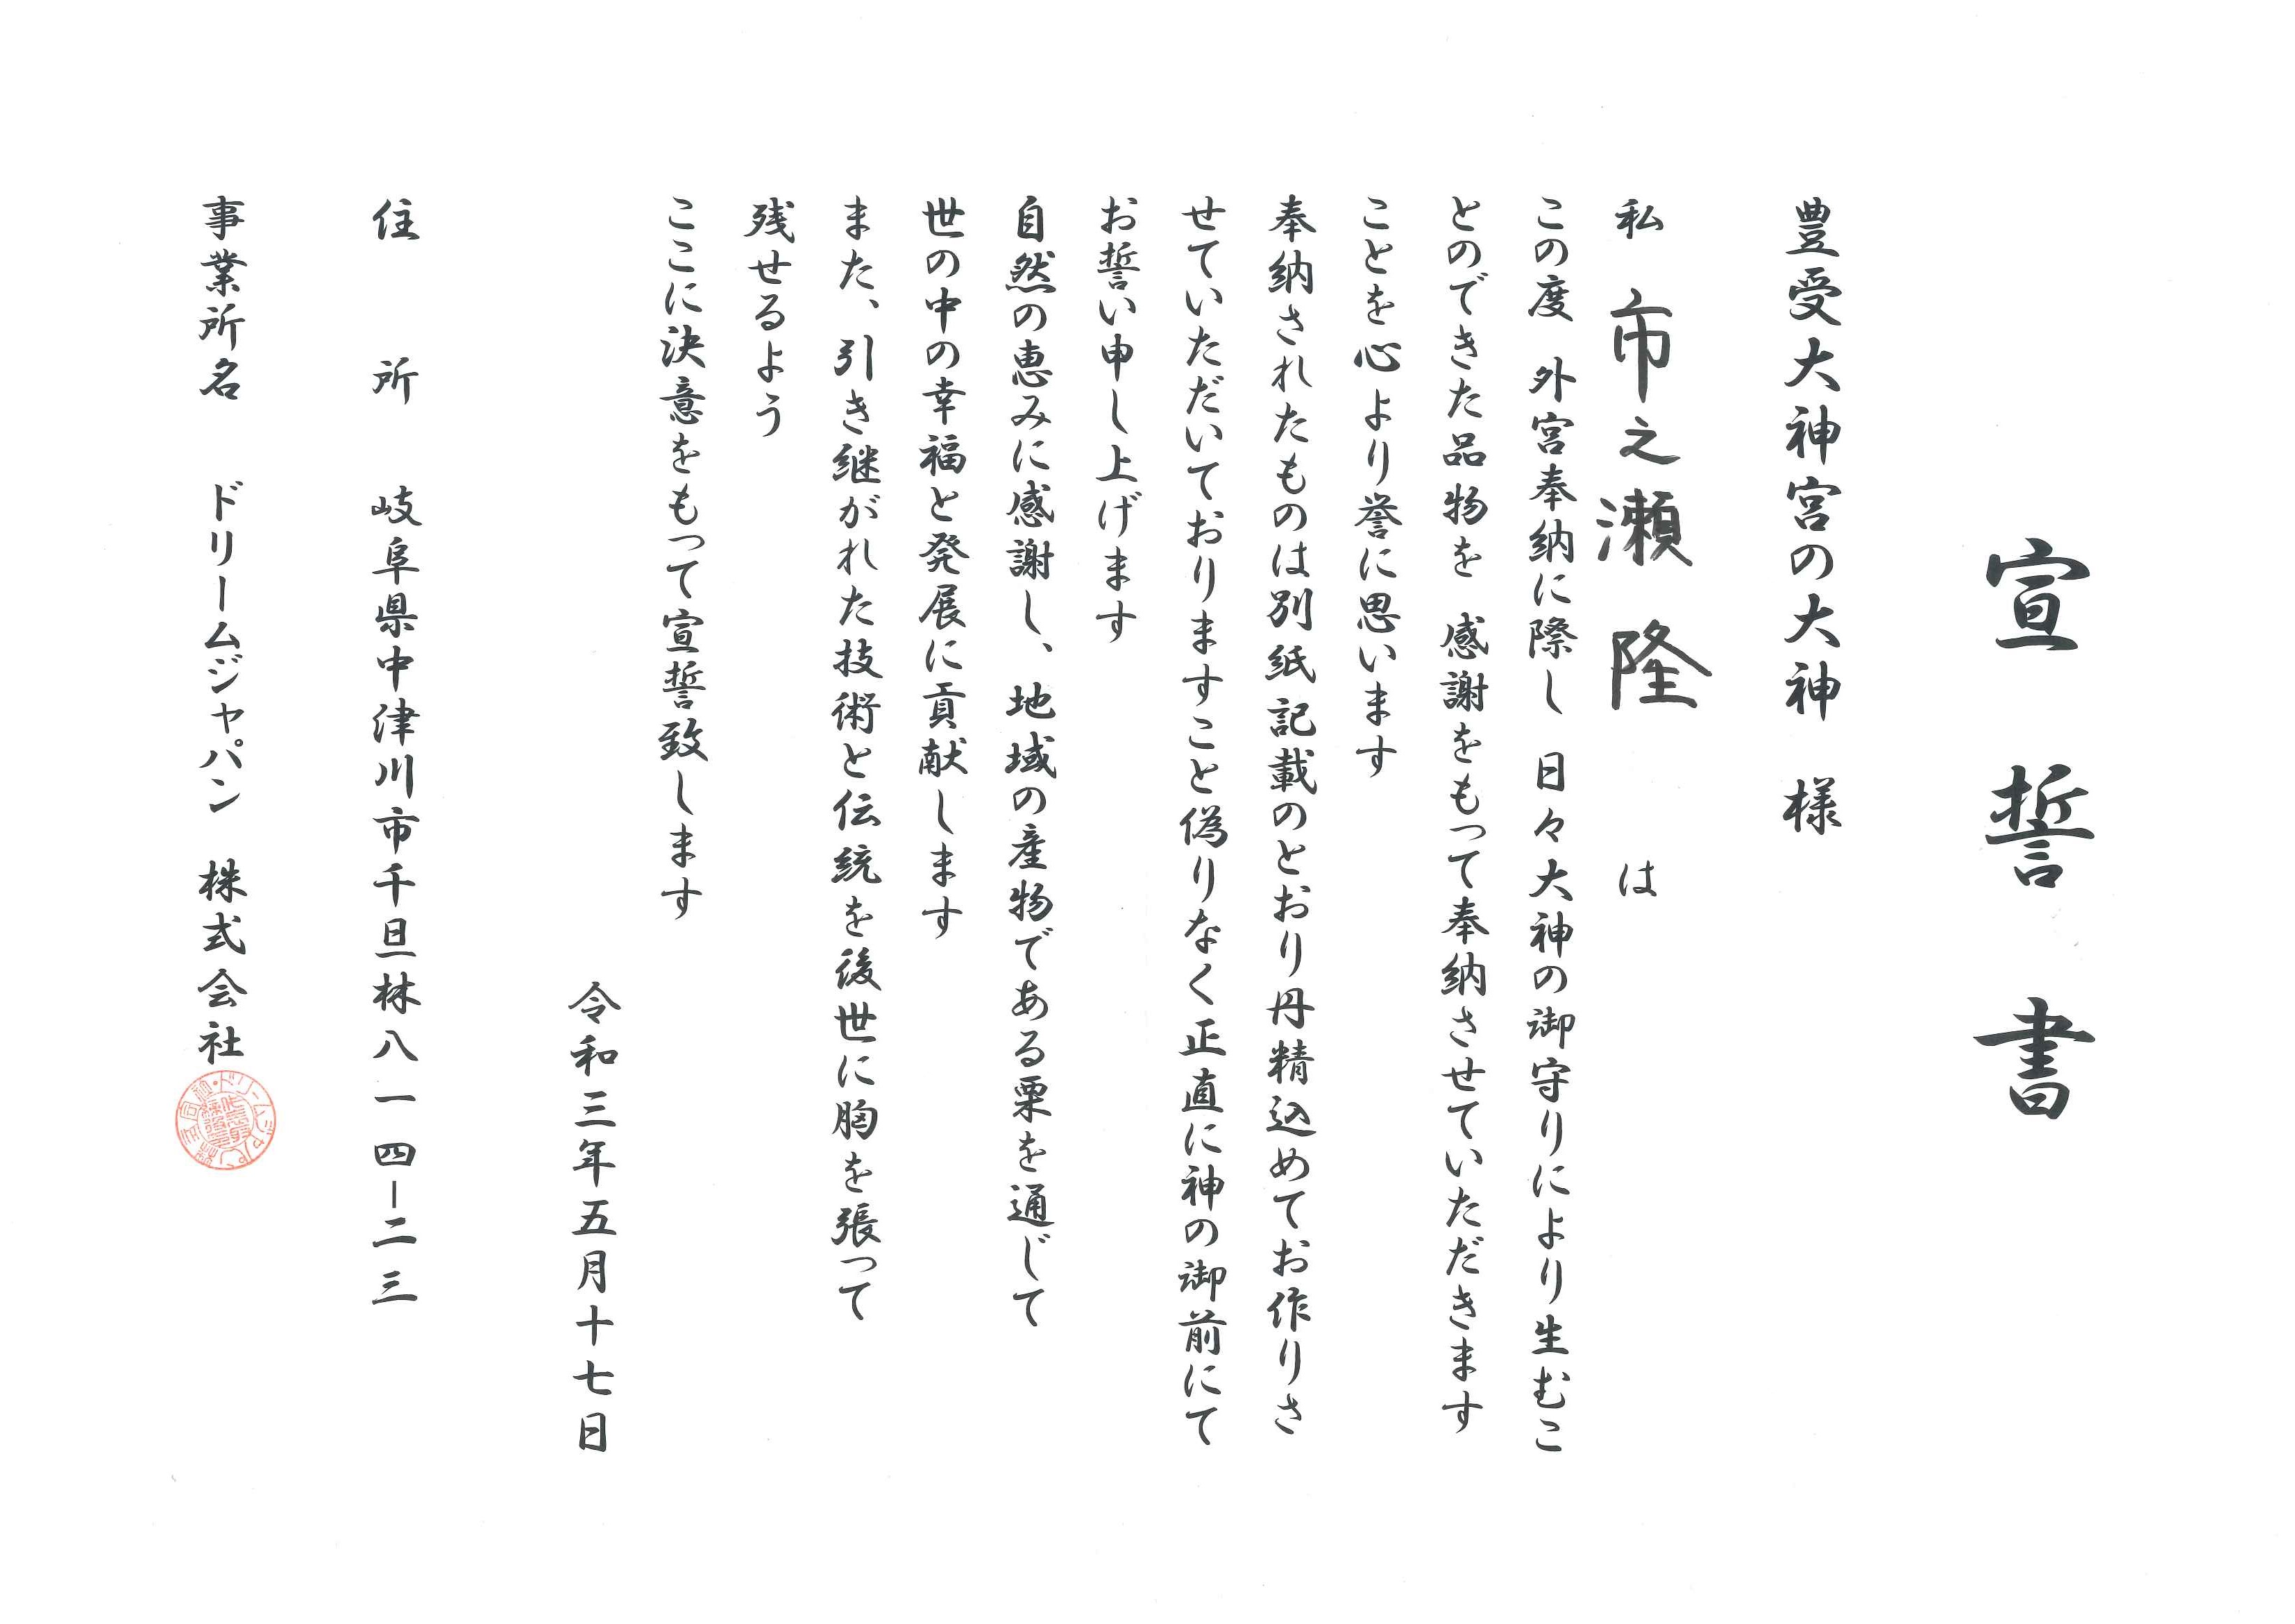 宣誓書
豊受大神宮の大神　様
私　市之瀬　隆　は
この度　外宮奉納に際し　日々大神の御守りにより生むこ
とのできた品物を　感謝をもって奉納させていただきます
ことを心より誉に思います
奉納されたものは別紙記載のとおり丹精込めてお作りさ
せていただいておりますこと偽りなく正直に神の御前にて
お誓い申し上げます
自然の恵みに感謝し、地域の産物である栗を通じて
世の中の幸福と発展に貢献します
また、引き継がれた技術と伝統を後世に胸を張って
残せるよう
ここに決意をもって宣誓致します
令和三年五月十七日
住　所　岐阜県中津川市千旦林八一四－二三
事業所名　ドリームジャパン　株式会社